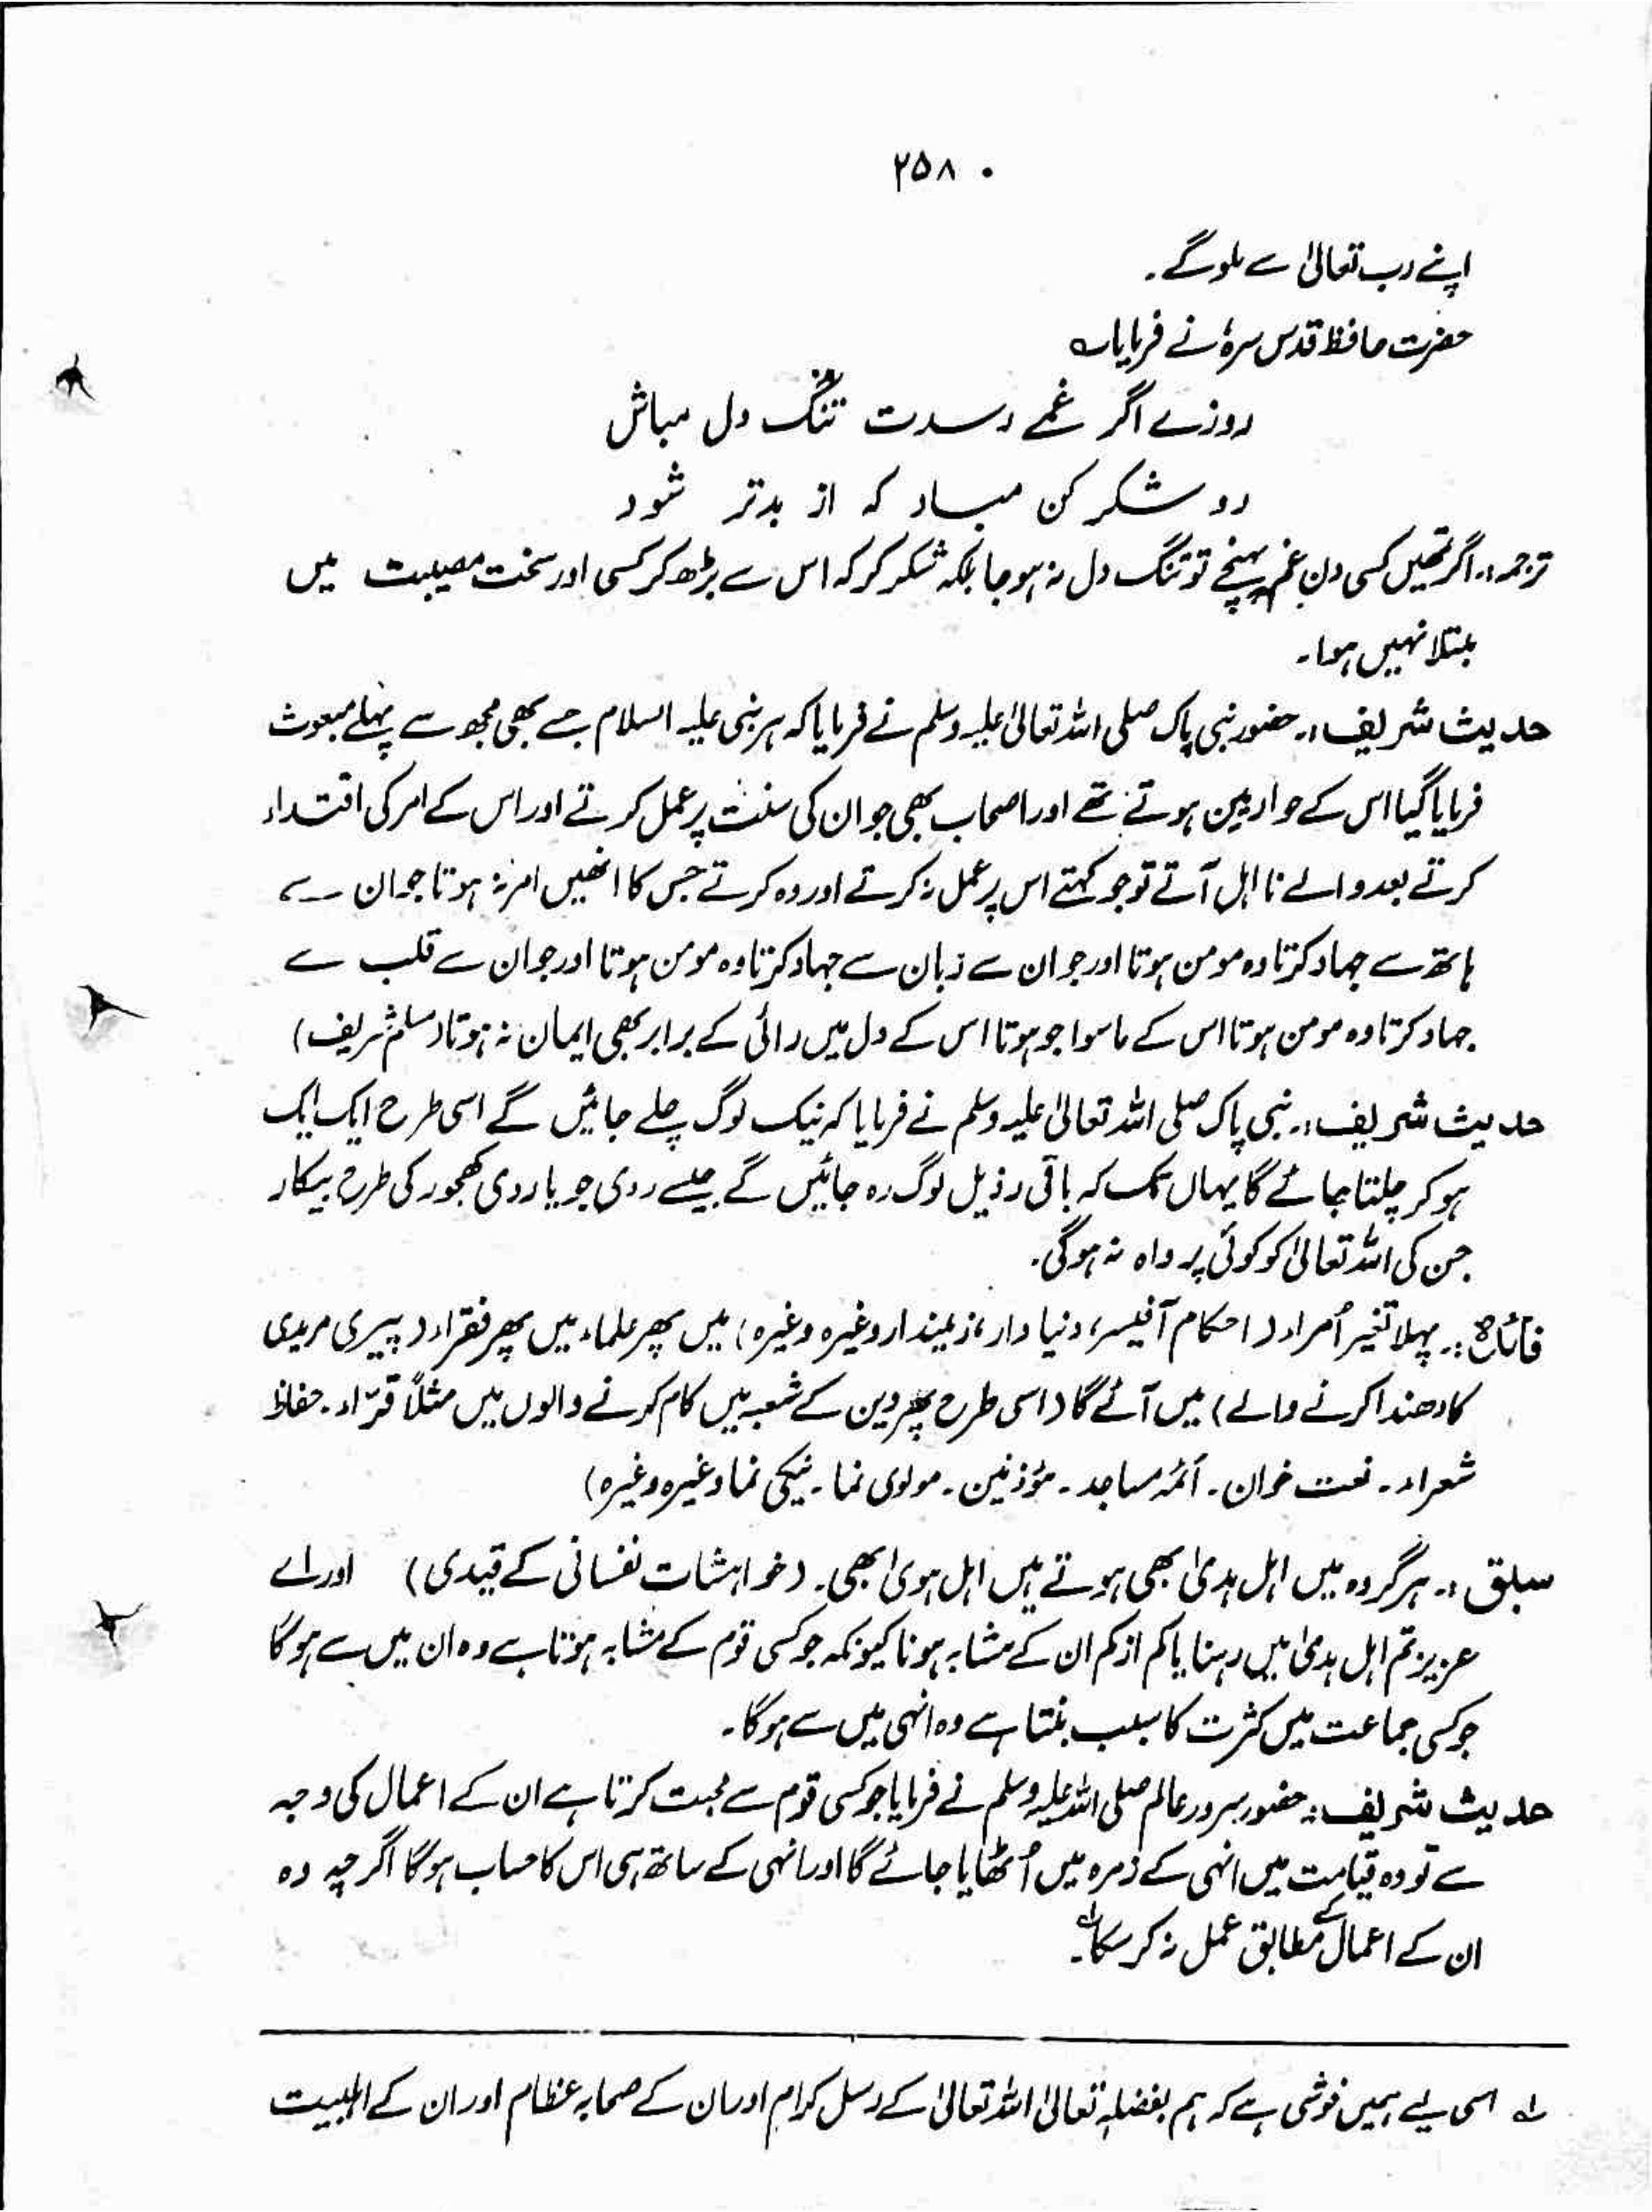 ۲۵۸
اپنے رب تعالیٰ سے ملو گے۔
حضرت حافظ قدس سرہٗ نے فرمایا ؎
روزے اگر غمے رسدت تنگ دل مباش
رو شکر کن مباد کہ از بدتر شود
ترجمہ:۔ اگر تمھیں کسی دن غم پہنچے تو تنگ دل نہ ہو جا بلکہ شکر کر کہ اس سے بڑھ کر کسی اور سخت مصیبت میں
مبتلا نہیں ہوا۔
حدیث شریف:۔ حضور نبی پاک صلی اللہ تعالیٰ علیہ وسلم نے فرمایا کہ ہر نبی علیہ السلام جسے بھی مجھ سے پہلے مبعوث
فرمایا گیا اس کے حواریین ہوتے تھے اور اصحاب بھی جو ان کی سنت پر عمل کرتے اور اس کے امر کی اقتداء
کرتے بعد والے نا اہل آتے تو جو کہتے اس پر عمل نہ کرتے اور وہ کرتے جس کا انھیں امر نہ ہوتا جو ان سے
ہاتھ سے جہاد کرتا وہ مومن ہوتا اور جو ان سے زبان سے جہاد کرتا وہ مومن ہوتا اور جو ان سے قلب سے
جہاد کرتا وہ مومن ہوتا اس کے ماسوا جو ہوتا اس کے دل میں رائی کے برابر بھی ایمان نہ ہوتا (مسلم شریف)
حدیث شریف:۔ نبی پاک صلی اللہ تعالیٰ علیہ وسلم نے فرمایا کہ نیک لوگ چلے جائیں گے اسی طرح ایک ایک
ہو کر چلتا جائے گا یہاں تک کہ باقی رذیل لوگ رہ جائیں گے جیسے ردی جو یا ردی کھجور کی طرح بیکار
جن کی اللہ تعالیٰ کو کوئی پرواہ نہ ہوگی۔
فائدہ:۔ پہلا تغیر اُمراء (احکام آفیسر، دنیا دار، زمیندار وغیرہ وغیرہ) میں پھر علماء میں پھر فقراء (پیری مریدی
کا دھندا کرنے والے) میں آئے گا (اسی طرح پھر دین کے شعبہ میں کام کرنے والوں میں مثلاً قرّاء۔ حفاظ
شعراء۔ نعت خوان۔ آئمہ مساجد۔ مؤذنین۔ مولوی نما۔ نیکی نما وغیرہ وغیرہ)
سبق:۔ ہر گروہ میں اہل ہدیٰ بھی ہوتے ہیں اہل ہویٰ بھی۔ (خواہشات نفسانی کے قیدی) اور اے
عزیز تم اہل ہدیٰ میں رہنا یا کم از کم ان کے مشابہ ہونا کیونکہ جو کسی قوم کے مشابہ ہوتا ہے وہ ان میں سے ہوگا
جو کسی جماعت میں کثرت کا سبب بنتا ہے وہ انہی میں سے ہوگا۔
حدیث شریف:۔ حضور سرور عالم صلی اللہ علیہ وسلم نے فرمایا جو کسی قوم سے محبت کرتا ہے ان کے اعمال کی وجہ
سے تو وہ قیامت میں انہی کے زمرہ میں اُٹھایا جائے گا اور انہی کے ساتھ ہی اس کا حساب ہوگا اگرچہ وہ
ان کے اعمال کے مطابق عمل نہ کر سکا۔ لے
لے اسی لیے ہمیں خوشی ہے کہ ہم بفضلہ تعالیٰ اللہ تعالیٰ کے رسل کرام اور ان کے صحابہ عظام اور ان کے اہلبیت